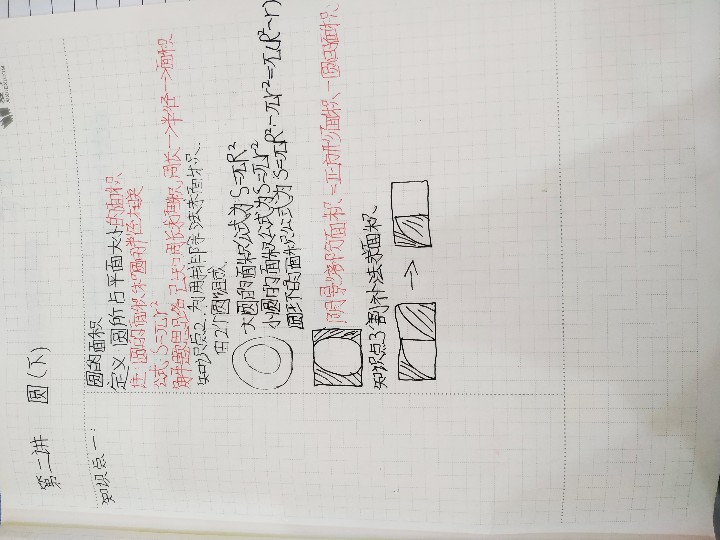 第二讲 圆(下)
知识点一:
圆的面积
定义 圆所占平面大小的面积
注 圆的面积和圆的半径有关
公式:S=πr²
解题思路 已知周长求面积,周长→半径→面积
知识点2、利用我们等法求面积。
由2个圆组成
大圆的面积公式为S=πR²
小圆的面积公式为S=πr²
圆环的面积公式为S=πR²-πr²=π(R²-r)
阴影部分面积=正方形面积-圆的面积
知识点3 割补法求面积、